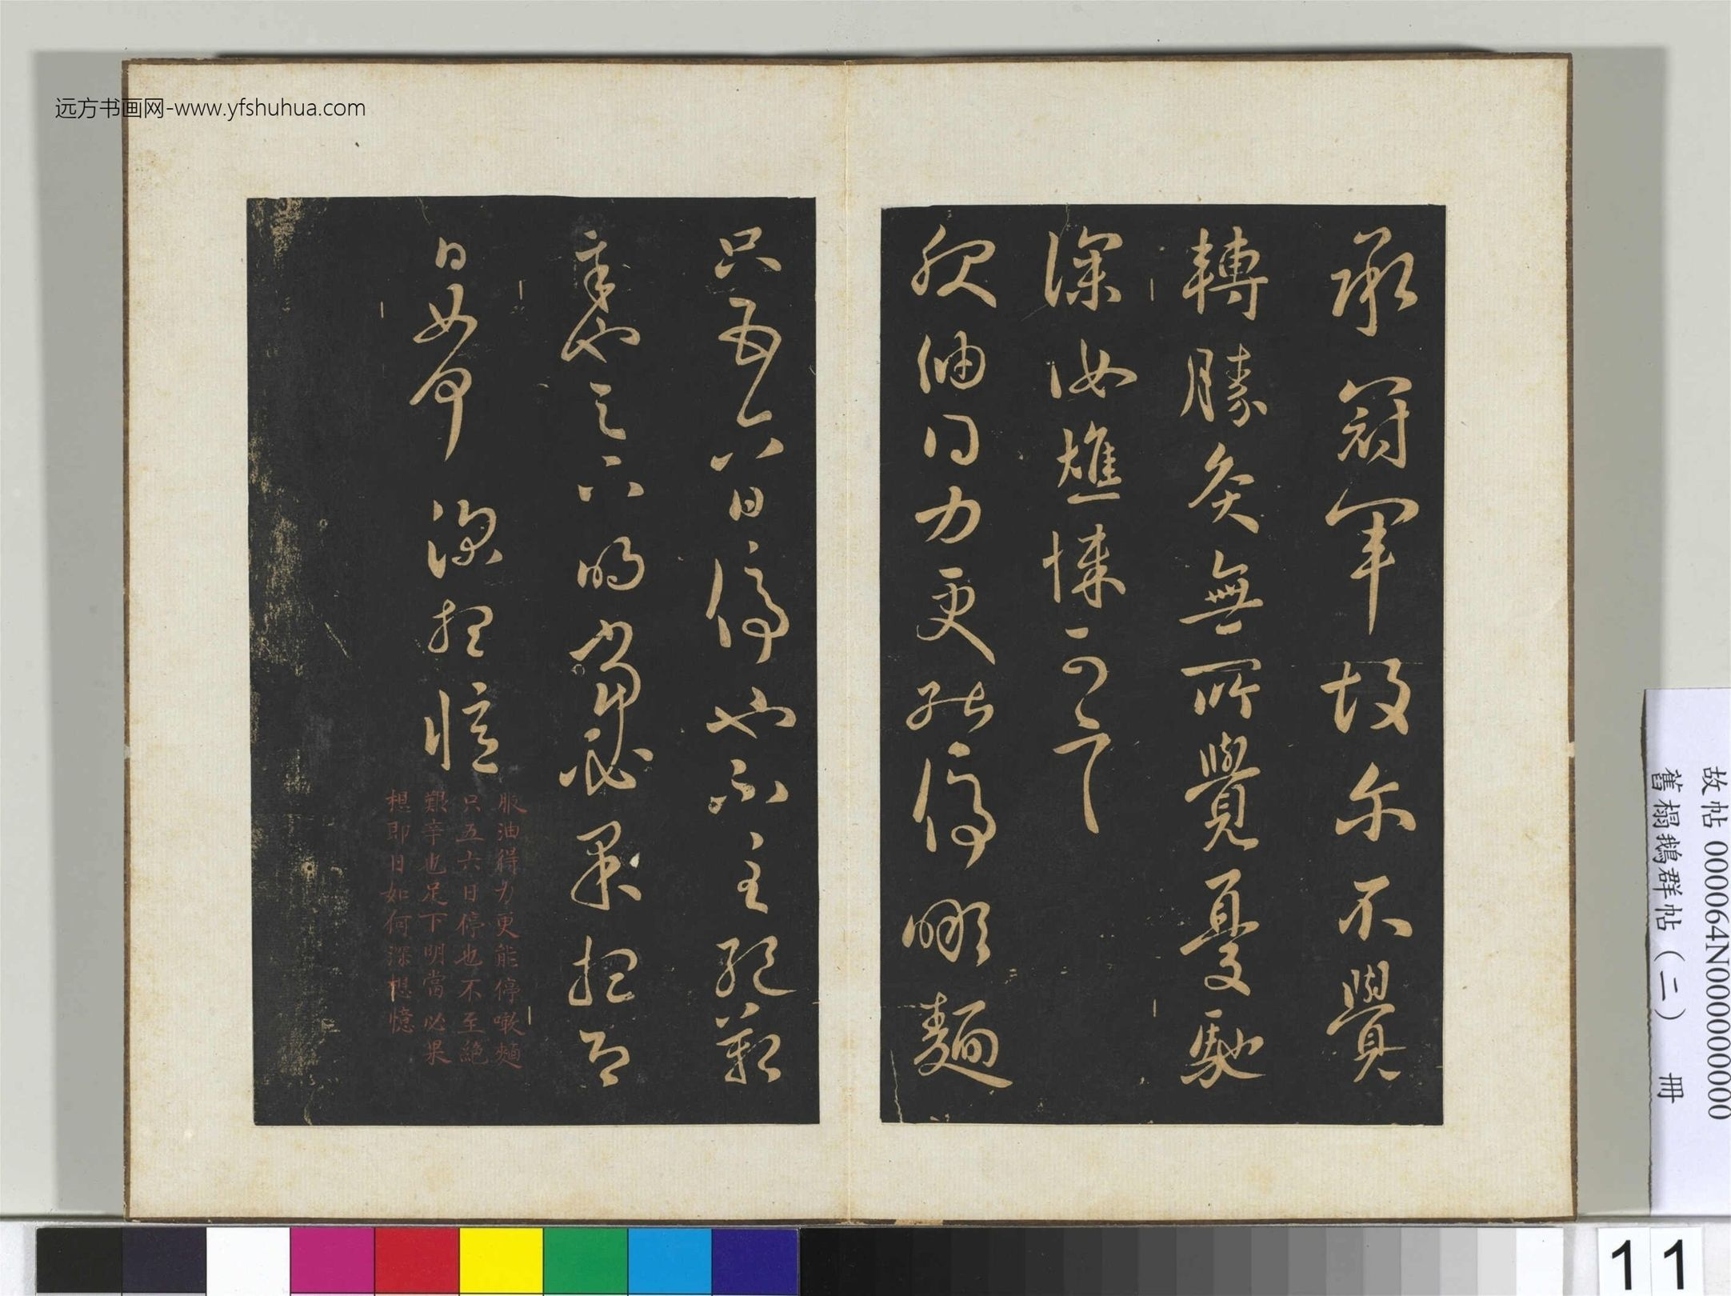 远方书画网-www.yfshuhua.com
承冠軍故尔不覺
轉勝灸無所覺憂馳
深汝燋悚可言
服油得力更能停噉麵
只五六日停也不至絕艱
辛也足下明當必果想即
日如何深想憶
服油得力更能停噉麵
只五六日停也不至絕
艱辛也足下明當必果
想即日如何深想憶
故帖 000064N000000000
舊榻鵝群帖（二） 冊
11